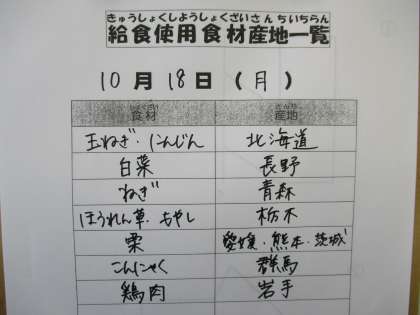 きゅうしょくしようしょくざいさんちいちらん
給食使用食材産地一覧
10月18日(月)
食材 産地
玉ねぎ・にんじん 北海道
白菜 長野
ねぎ 青森
ほうれん草・もやし 栃木
栗 愛媛・熊本・茨城
こんにゃく 群馬
鶏肉 岩手